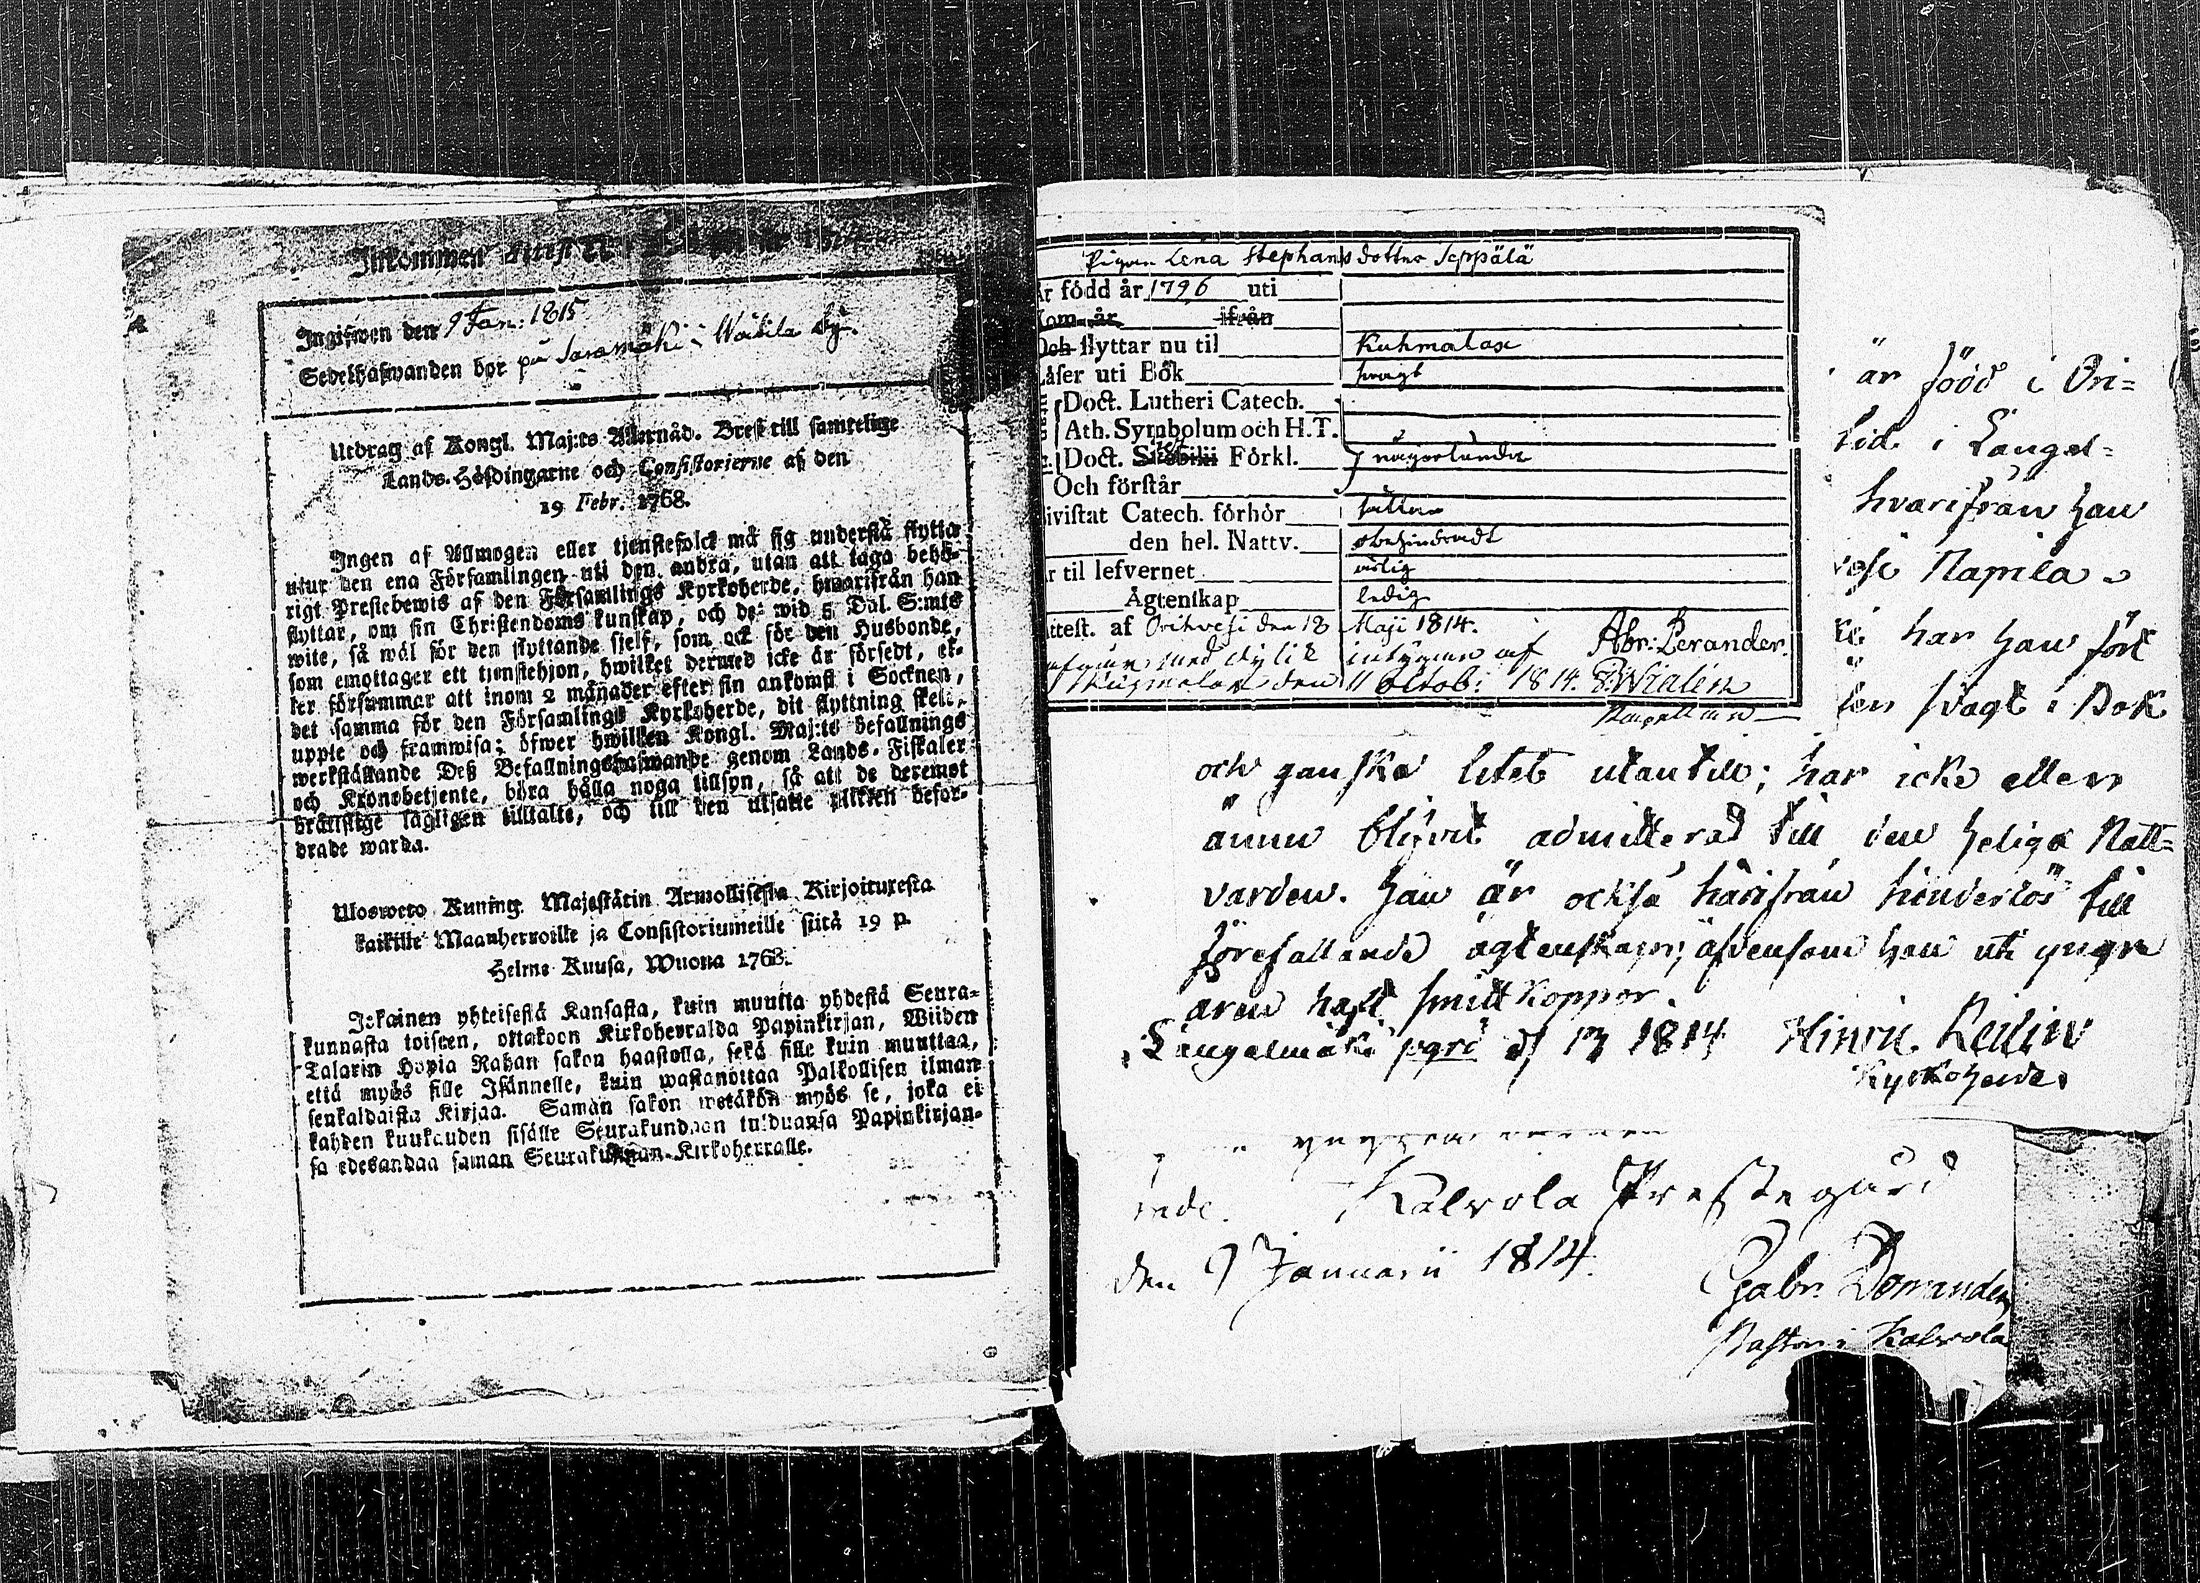 Inkommen
Ingifwen den 9 Jan: 1815
Sedelhafwanden bor på Saramäki i Woitila by.
Utdrag af Kongl. Maj:ts Allernåd. Bref till samtelige
Lands-Höfdingarne och Consistorierne af den
19 Febr. 1768.
Ingen af Allmogen eller tjenstefolck må sig understå flytta
utur den ena Församlingen uti den andra, utan att taga behö-
rigt Prestebewis af den Församlings Kyrkoherde, hwarifrån han
flyttar, om sin Christendoms kunskap, och det wid 5 Dal. S:mts
wite, så wäl för den flyttande sjelf, som ock för den Husbonde,
som emottager ett tjenstehjon, hwilket dermed icke är försedt, el-
ler försummar att inom 2 månader efter sin ankomst i Socknen,
det samma för den Församlings Kyrkoherde, dit flyttning skett,
uppte och framwisa; öfwer hwilken Kongl. Maj:ts Befallnings
werkställande Deß Befallningshafwande genom Lands-Fiskaler
och Kronobetjente, böra hålla noga tillsyn, så att de deremot
brättslige lagligen tilltalte, och till den utsatte plikten befor-
drade warda.
Uloswetо Kuning. Majestätin Armollisesta Kirjoituxesta
kaikille Maanherroille ja Consistoriumeille siitä 19 p.
Helme Kuusa, Wuona 1768.
Jokainen yhteisestä Kansasta, kuin muutta yhdestä Seura-
kunnasta toiseen, ottakoon Kirkoherralda Papinkirjan, Wiiden
Talarin Hopia Rahan sakon haastolla, sekä sille kuin muuttaa,
että myös sille Isännelle, kuin wastanottaa Palkollisen ilman
senkaldaista Kirjaa. Saman sakon wetäkön myös se, joka ei
kahden kuukauden sisälle Seurakundaan tulduansa Papinkirjan-
sa edesandaa saman Seurakunnan Kirkoherralle.
Pigan Lena Stephans dotter Seppälä
Ar född år 1796 uti
Kom år ifrån
Och flyttar nu til Kuhmalax
Läser uti Bok svagt
Doct. Lutheri Catech.
Ath. Symbolum och H.T.
Doct. Svebilii Förkl. någorlunda
Och förstår
Bivistat Catech. förhör sällan
den hel. Nattv. obehindradt
Ar til lefvernet ärlig
Ägtenskap ledig
Attest. af Orihvesi den 18 Maji 1814. Abr: Lerander.
afgår med dylik intygan af
Kuhmalax den 11 Octob: 1814. Wialén
Kapellan
är född i Ori-
tid i Längel-
hvarifrån han
vesi Napila
har han fört
sen svagt i Bok
och ganska litet utan till; har icke eller
ännu blifvit admitterad till den heliga Natt-
varden. Han är också härifrån hinderlös till
förefallande ägtenskap; äfvensom han uti yngre
åren haft smittkoppor.
Längelmäki pgrd d 13 1814 Hinric. Reilin
Kyrkoherde.
yngre
Kalvola Prestegård
den 9 Januarii 1814.
Gabr. Donander
Pastor i Kalvola